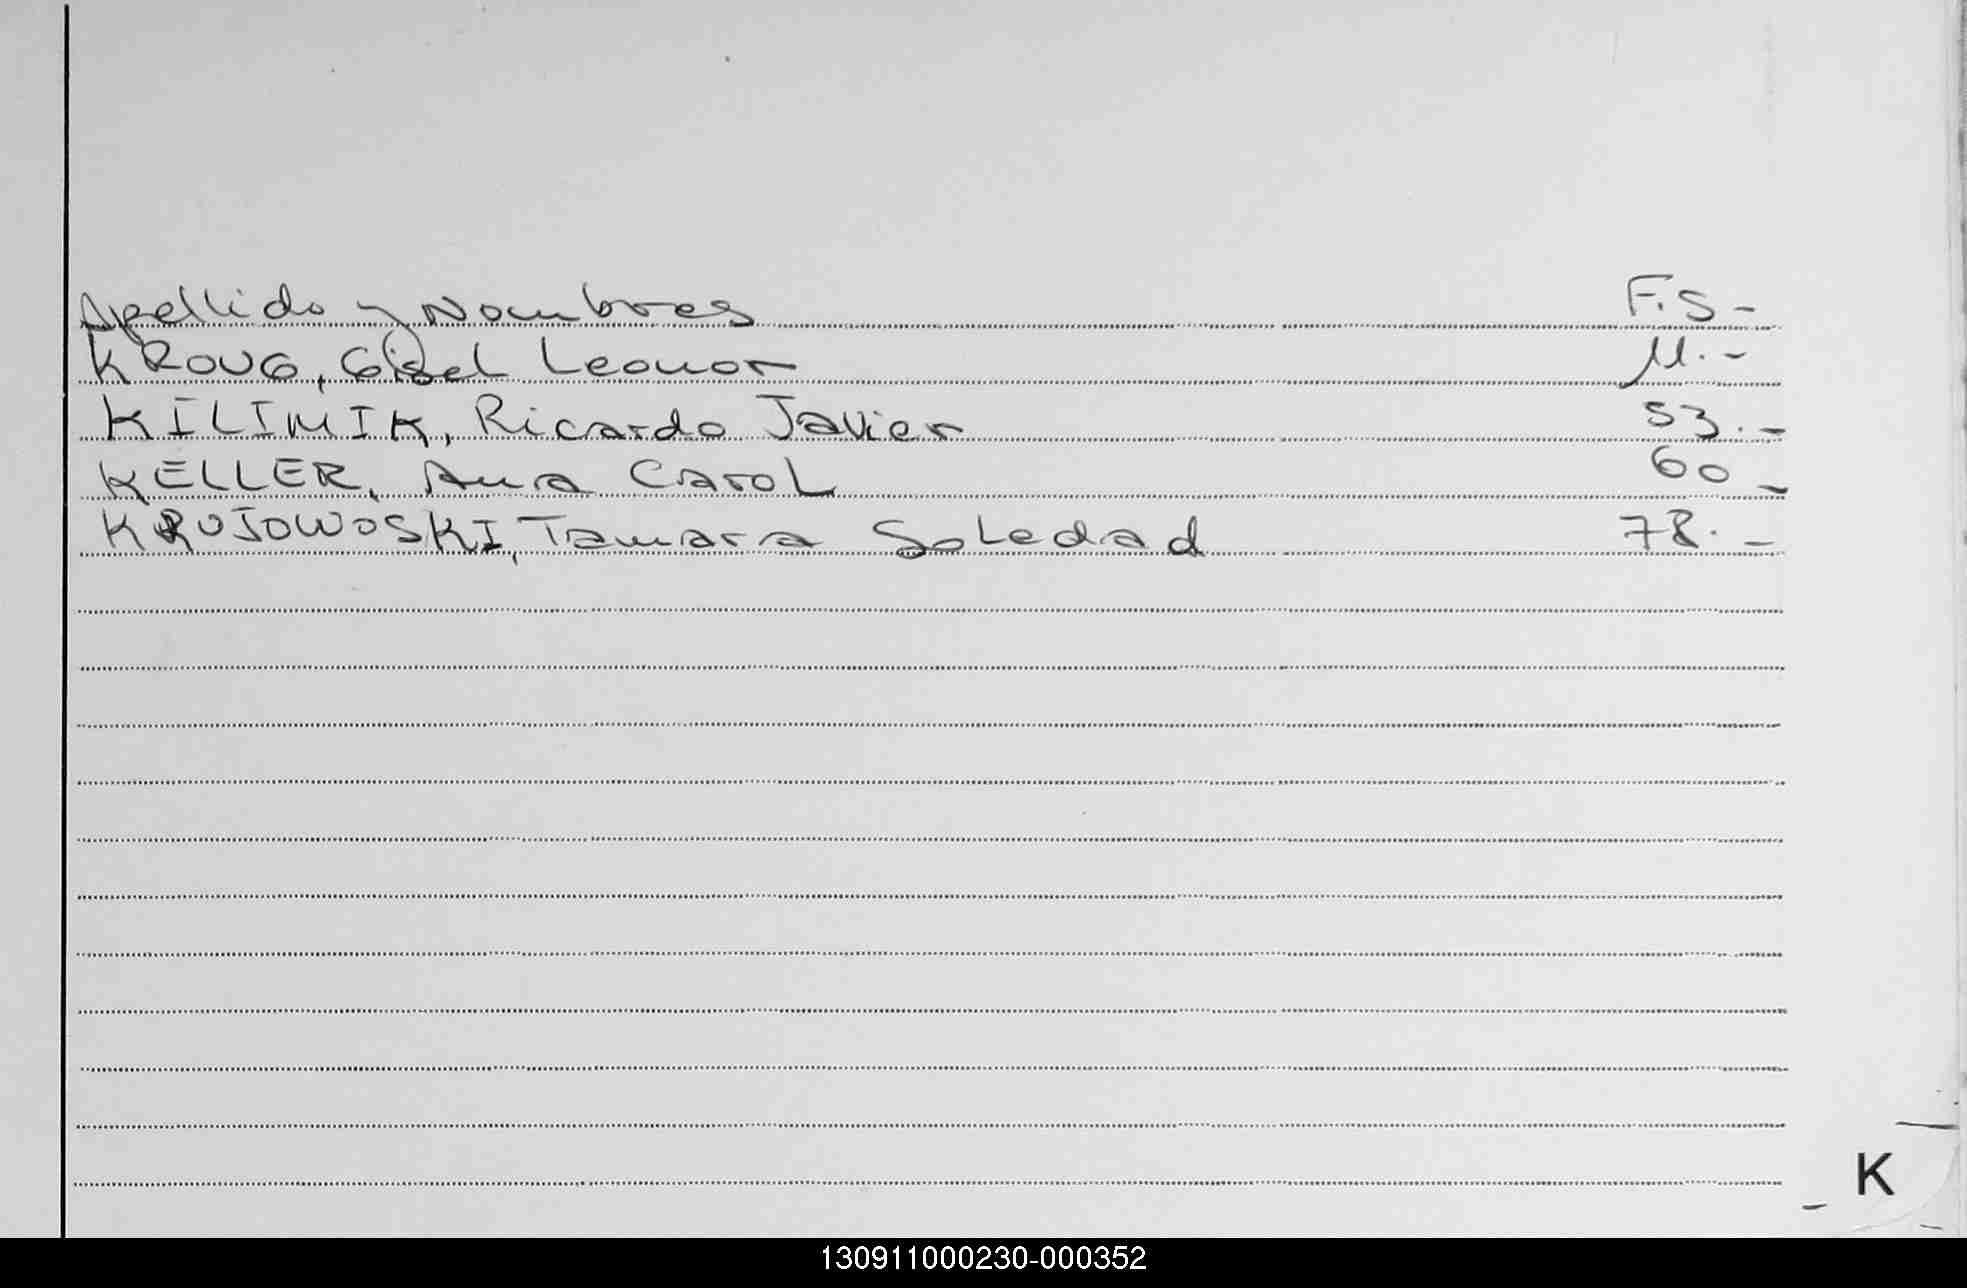 Apellido y Nombres F.S-
KROUG, Gisel Leonor 11.-
KILIMIK, Ricardo Javier 53.-
KELLER, Ana Carol 60-
KRUJOWOSKI, Tamara Soledad 78.-
K
130911000230-000352